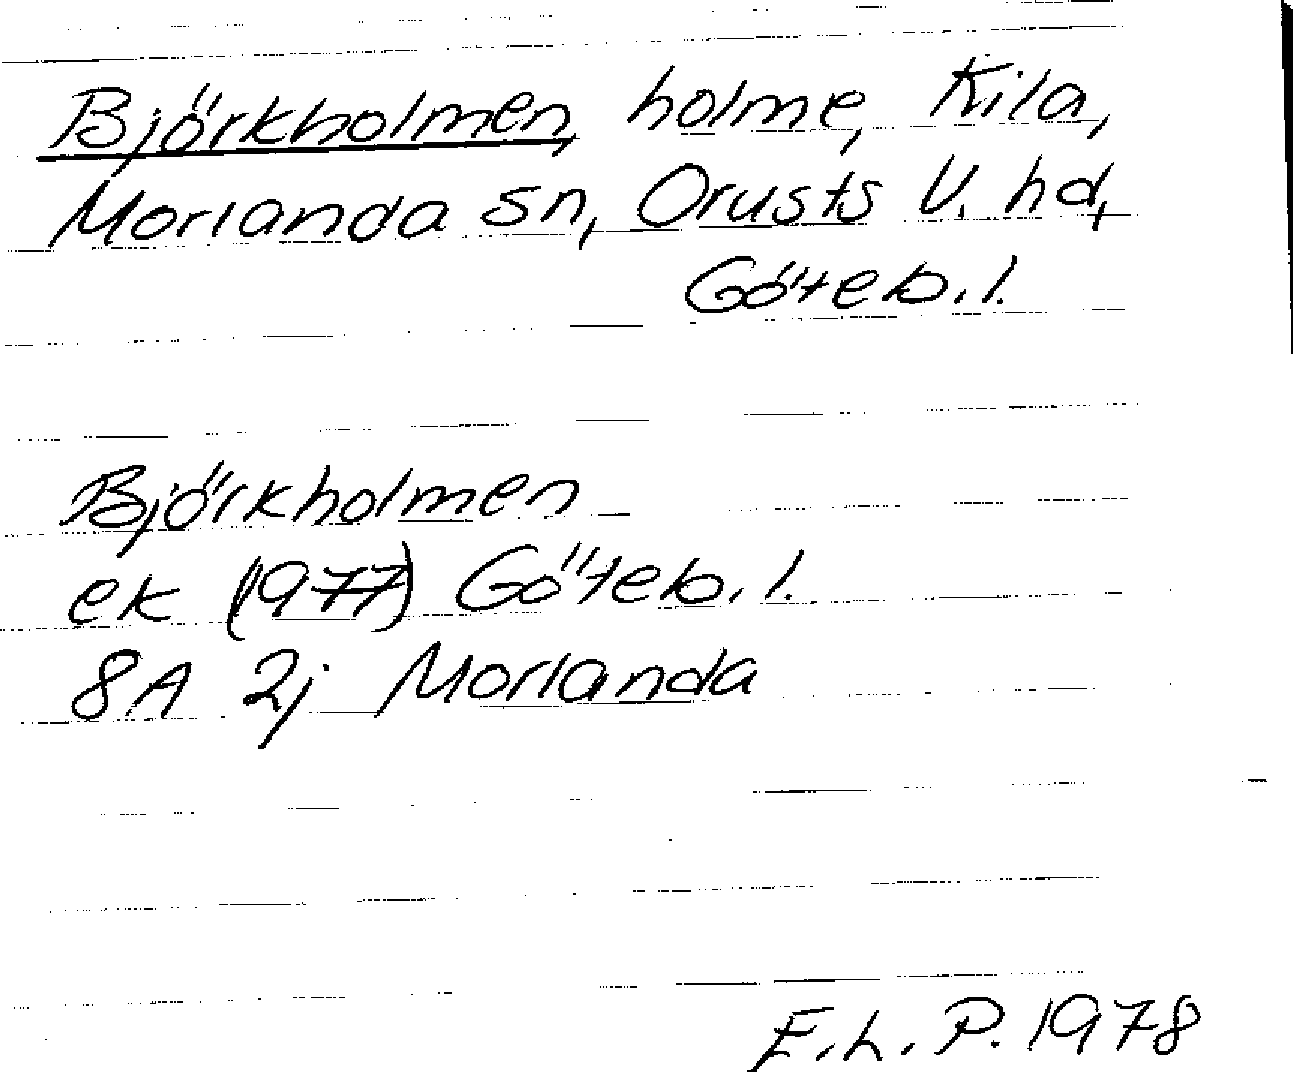 Björkholmen, holme, Kila,
Morlanda sn, Orusts V. hd,
Göteb. l.
Björkholmen
ek (1977) Göteb. l.
8A 2j Morlanda
E. L. P. 1978